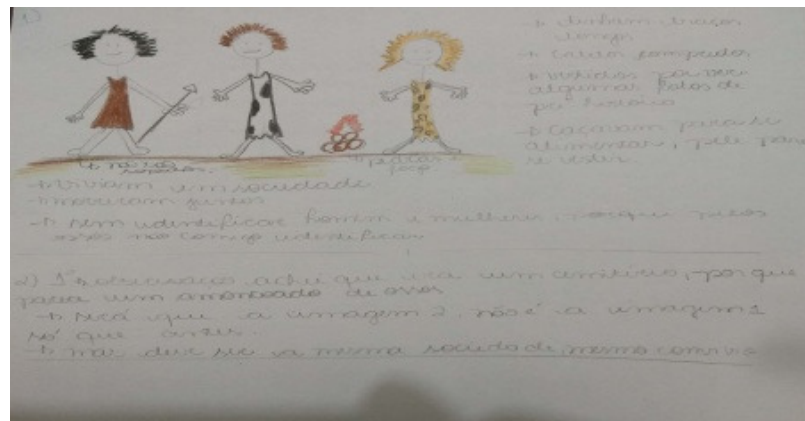 1)
→ tinham traços
longos
→ cabelos compridos
→ vestidos por ver
algumas fotos de
pré história
→ caçavam para se
alimentar, pele para
se vestir
→ pedras e
fogo
→ viviam em sociedade
→ moravam juntos
→ sem identificar homem e mulheres, porque pelos
ossos não consigo identificar
2) 1ª observação achei que era um cemitério, por que
um amontoado de ossos
→ será que a imagem 2, não é a imagem 1
só que antes.
→ mas deve ser a mesma sociedade, mesmo